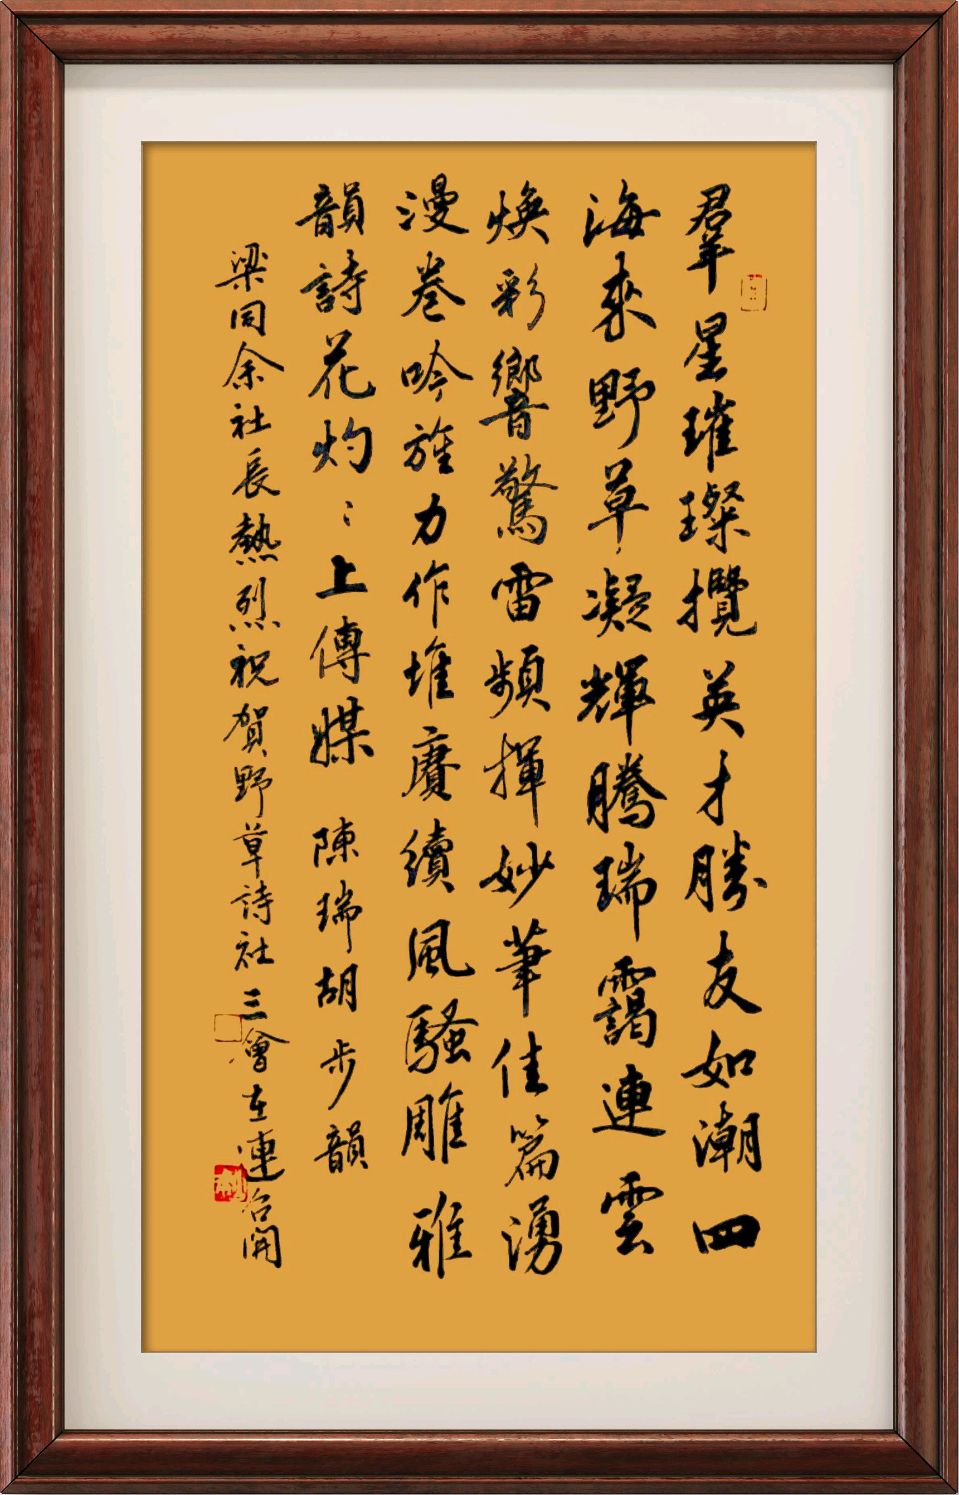 羣星璀璨攬英才勝友如潮四
海來野草凝輝騰瑞靄連雲
煥彩響驚雷頻揮妙筆佳篇湧
漫卷吟旌力作堆賡續風騷雕雅
韻詩花灼〻上傳媒 陳瑞胡步韻
梁同余社長熱烈祝賀野草詩社三會在連召開